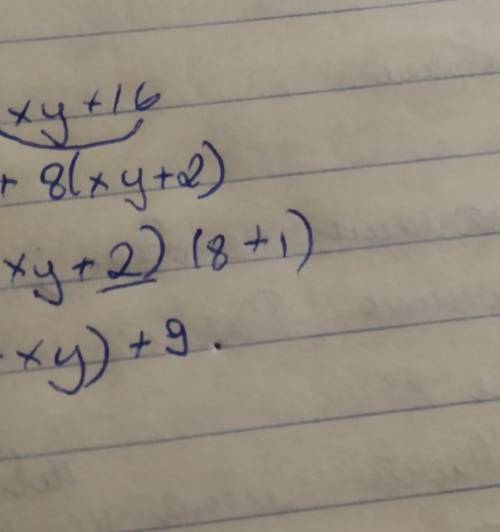 xy+16
+ 8(xy+2)
xy+2) (8+1)
xy) +9.